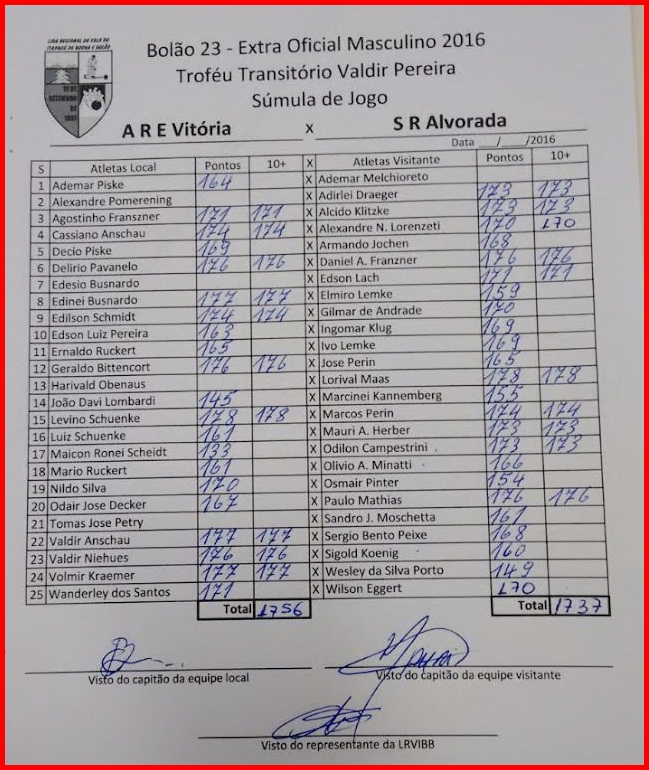 LIGA REGIONAL DO VALE DO
ITAPOCÚ DE BOCHA E BOLÃO
19 DE
SETEMBRO
DE
Bolão 23 - Extra Oficial Masculino 2016
Troféu Transitório Valdir Pereira
Súmula de Jogo
A R E Vitória x S R Alvorada
Data ___/____/2016
S Atletas Local Pontos 10+ X Atletas Visitante Pontos 10+
1 Ademar Piske 164 X Ademar Melchioreto
2 Alexandre Pomerening X Adirlei Draeger 173 173
3 Agostinho Franszner 171 171 X Alcido Klitzke 173 173
4 Cassiano Anschau 174 174 X Alexandre N. Lorenzeti 170 170
5 Decio Piske 169 X Armando Jochen 168
6 Delirio Pavanelo 176 176 X Daniel A. Franzner 176 176
7 Edesio Busnardo X Edson Lach 171 171
8 Edinei Busnardo 177 177 X Elmiro Lemke 159
9 Edilson Schmidt 174 174 X Gilmar de Andrade 170
10 Edson Luiz Pereira 163 X Ingomar Klug 169
11 Ernaldo Ruckert 165 X Ivo Lemke 169
12 Geraldo Bittencort 176 176 X Jose Perin 165
13 Harivald Obenaus X Lorival Maas 178 178
14 João Davi Lombardi 145 X Marcinei Kannemberg 155
15 Levino Schuenke 178 178 X Marcos Perin 174 174
16 Luiz Schuenke 161 X Mauri A. Herber 173 173
17 Maicon Ronei Scheidt 133 X Odilon Campestrini 173 173
18 Mario Ruckert 161 X Olivio A. Minatti 166
19 Nildo Silva 170 X Osmair Pinter 154
20 Odair Jose Decker 167 X Paulo Mathias 176 176
21 Tomas Jose Petry X Sandro J. Moschetta 161
22 Valdir Anschau 177 177 X Sergio Bento Peixe 168
23 Valdir Niehues 176 176 X Sigold Koenig 160
24 Volmir Kraemer 177 177 X Wesley da Silva Porto 149
25 Wanderley dos Santos 171 X Wilson Eggert 170
Total 1756 Total 1737
Visto do capitão da equipe local Visto do capitão da equipe visitante
Visto do representante da LRVIBB